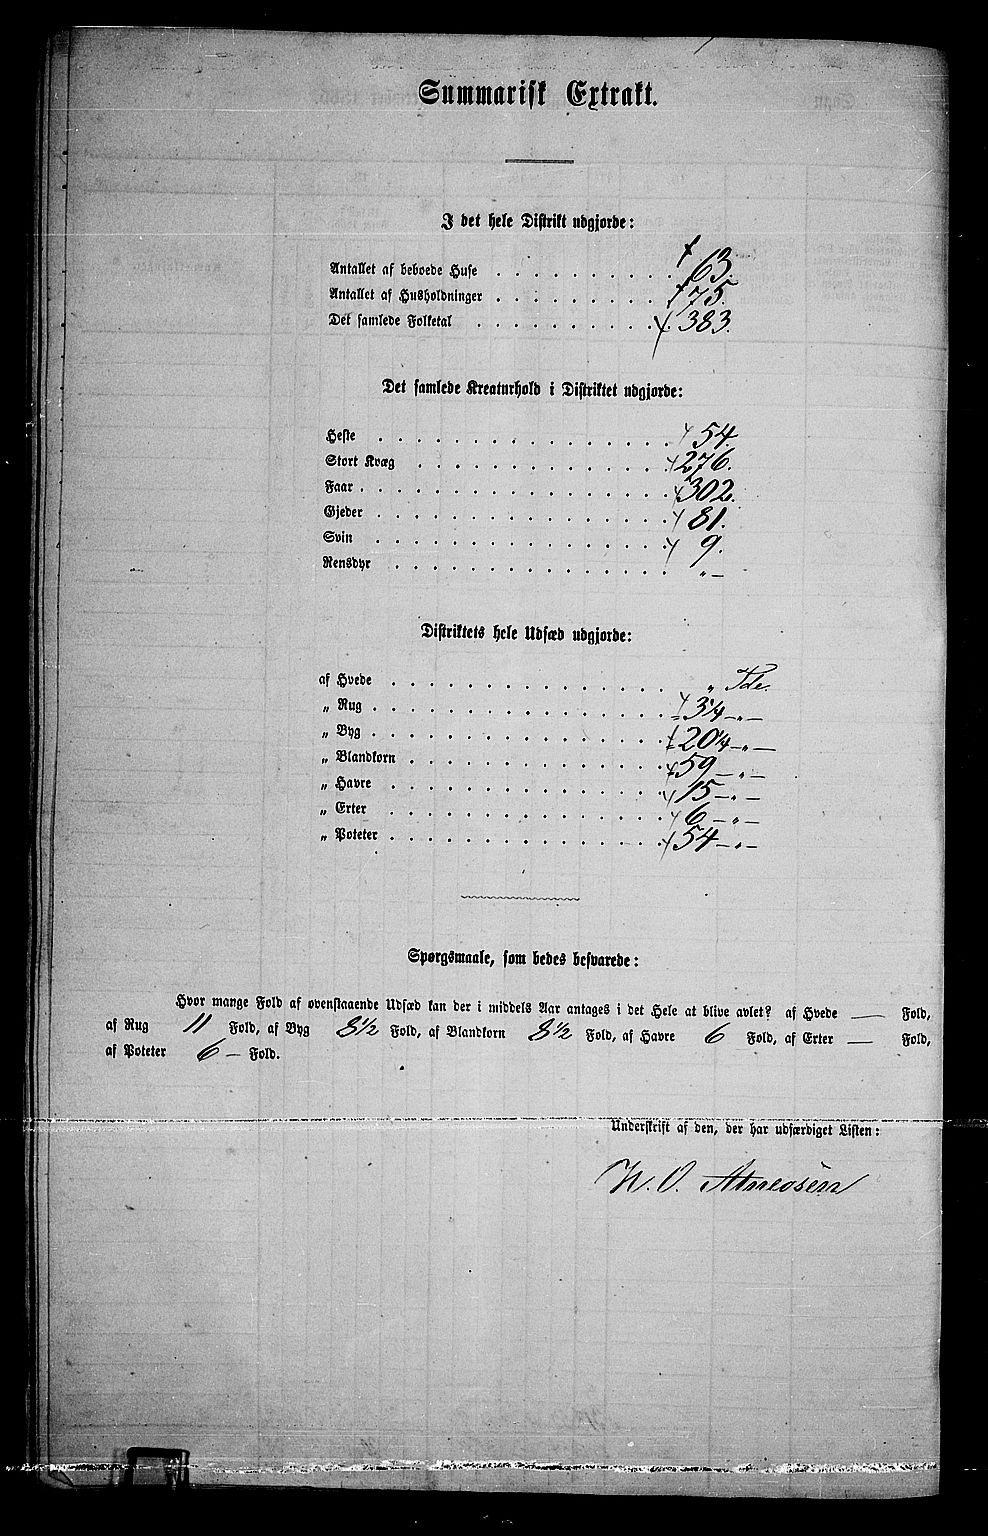 Summarisk Extrakt.
I det hele Distrikt udgjorde:
Antallet af beboede Huse . . . . . . . . . . 63.
Antallet af Husholdninger . . . . . . . . . . 75.
Det samlede Folketal . . . . . . . . . . . 383.
Det samlede Kreaturhold i Distriktet udgjorde:
Heste . . . . . . . . . . . . . . . . 54.
Stort Kvæg . . . . . . . . . . . . . . 276.
Faar . . . . . . . . . . . . . . . . . 302.
Gjeder . . . . . . . . . . . . . . . . 81.
Svin . . . . . . . . . . . . . . . . 9.
Rensdyr . . . . . . . . . . . . . . . „ —
Distriktets hele Udsæd udgjorde:
af Hvede . . . . . . . . . . . . . . . „ Tde.
„ Rug . . . . . . . . . . . . . . . . — „ —
„ Byg . . . . . . . . . . . . . . . . — „ —
„ Blandkorn . . . . . . . . . . . . . . 59 — „ —
„ Havre . . . . . . . . . . . . . . . 15 — „ —
„ Erter . . . . . . . . . . . . . . . 6 — „ —
„ Poteter . . . . . . . . . . . . . . . 54 — „ —
Spørgsmaale, som bedes besvarede:
Hvor mange Fold af ovenstaaende Udsæd kan der i middels Aar antages i det Hele at blive avlet? af Hvede — Fold,
af Rug 11 Fold, af Byg 8 1/2 Fold, af Blandkorn 8 1/2 Fold, af Havre 6 Fold, af Erter — Fold,
af Poteter 6 — Fold.
Underskrift af den, der har udfærdiget Listen:
O.